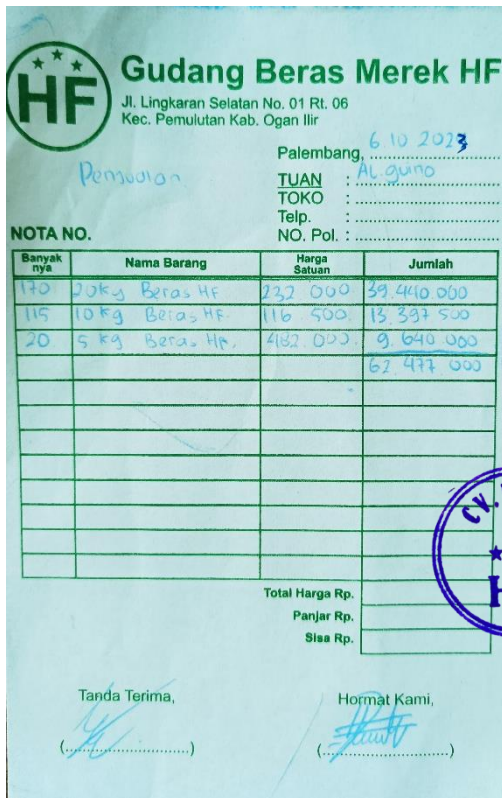 HF
Gudang Beras Merek HF
Jl. Lingkaran Selatan No. 01 Rt. 06
Kec. Pemulutan Kab. Ogan Ilir
Palembang, 6.10 2023
Penjualan
TUAN : AL.guno
TOKO :
Telp. :
NOTA NO.
NO. Pol. :
Banyak nya Nama Barang Harga Satuan Jumlah
170 20kg Beras HF 232 000 39.440.000
115 10kg Beras HF. 116 500. 13.397 500
20 5 kg Beras HF. 482.000. 9.640.000
62.477 000
Total Harga Rp.
Panjar Rp.
Sisa Rp.
CV.
Tanda Terima, Hormat Kami,
(....................) (....................)